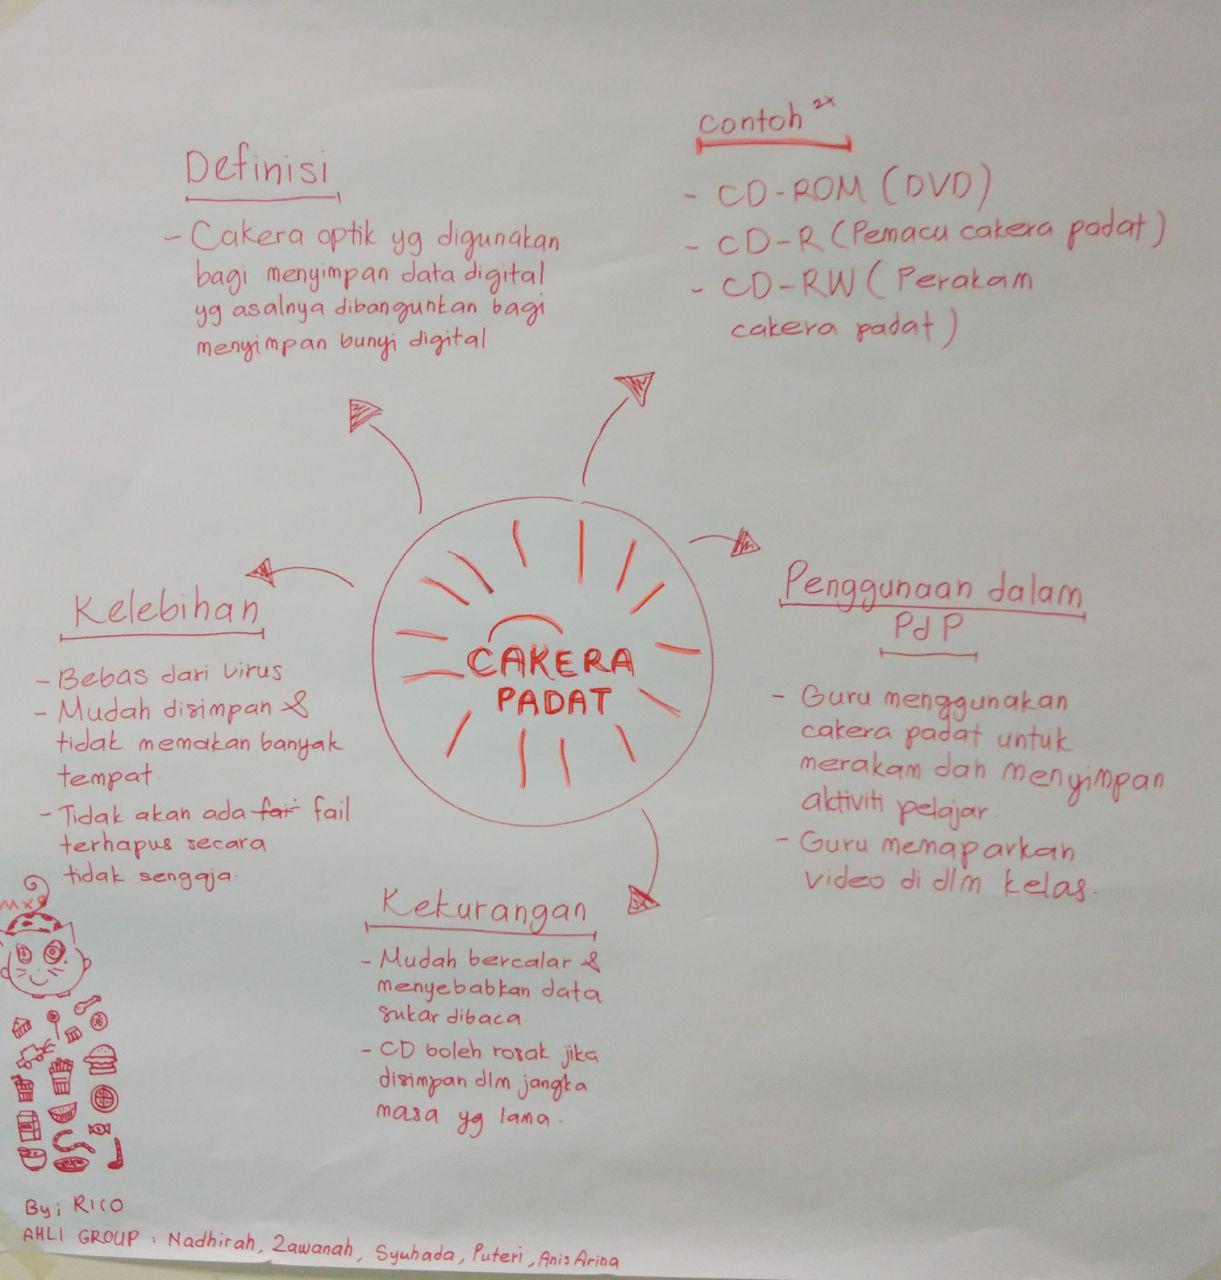 Definisi
- Cakera optik yg digunakan
bagi menyimpan data digital
yg asalnya dibangunkan bagi
menyimpan bunyi digital
Contoh 2x
- CD-ROM (DVD)
- CD-R (Pemacu cakera padat)
- CD-RW (Perakam
cakera padat)
CAKERA
PADAT
Kelebihan
- Bebas dari virus
- Mudah disimpan &
tidak memakan banyak
tempat.
- Tidak akan ada fail
terhapus secara
tidak sengaja.
Penggunaan dalam
PdP
- Guru menggunakan
cakera padat untuk
merakam dan menyimpan
aktiviti pelajar.
- Guru memaparkan
video di dlm kelas.
Kekurangan
- Mudah bercalar &
menyebabkan data
sukar dibaca.
- CD boleh rosak jika
disimpan dlm jangka
masa yg lama.
By; RICO
AHLI GROUP : Nadhirah, Zawanah, Syuhada, Puteri, Anis Arina